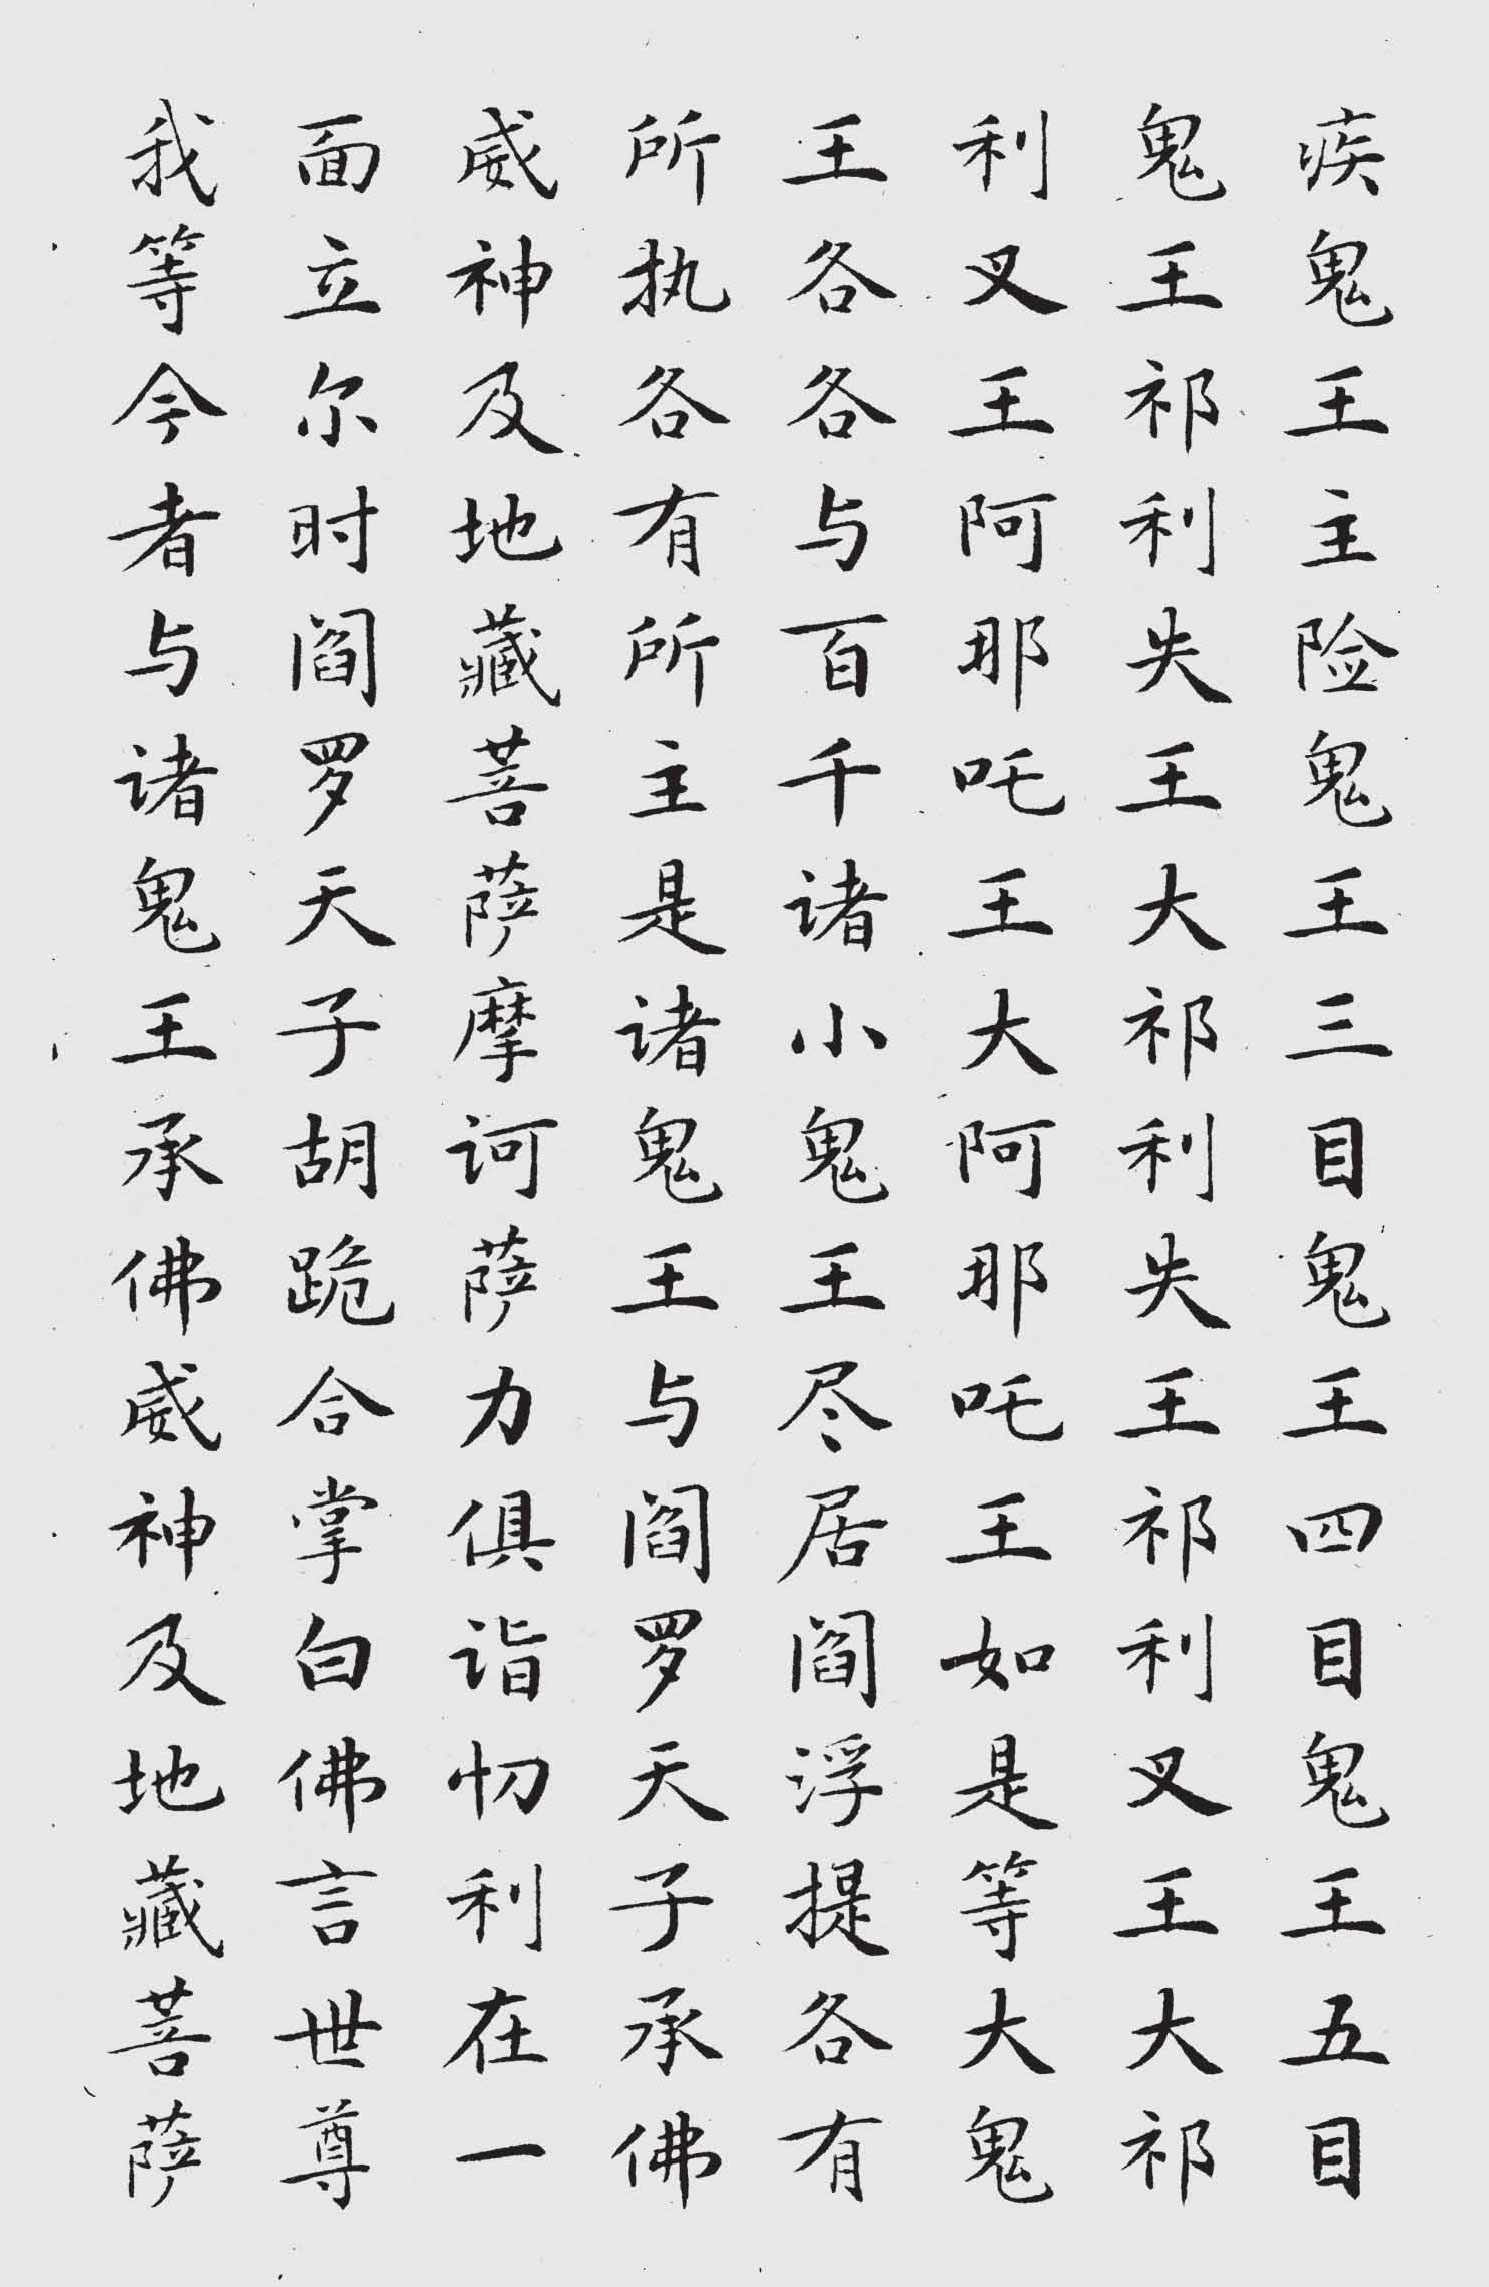 疾鬼王主险鬼王三目鬼王四目鬼王五目
鬼王祁利失王大祁利失王祁利叉王大祁
利叉王阿那吒王大阿那吒王如是等大鬼
王各各与百千诸小鬼王尽居阎浮提各有
所执各有所主是诸鬼王与阎罗天子承佛
威神及地藏菩萨摩诃萨力俱诣忉利在一
面立尔时阎罗天子胡跪合掌白佛言世尊
我等今者与诸鬼王承佛威神及地藏菩萨